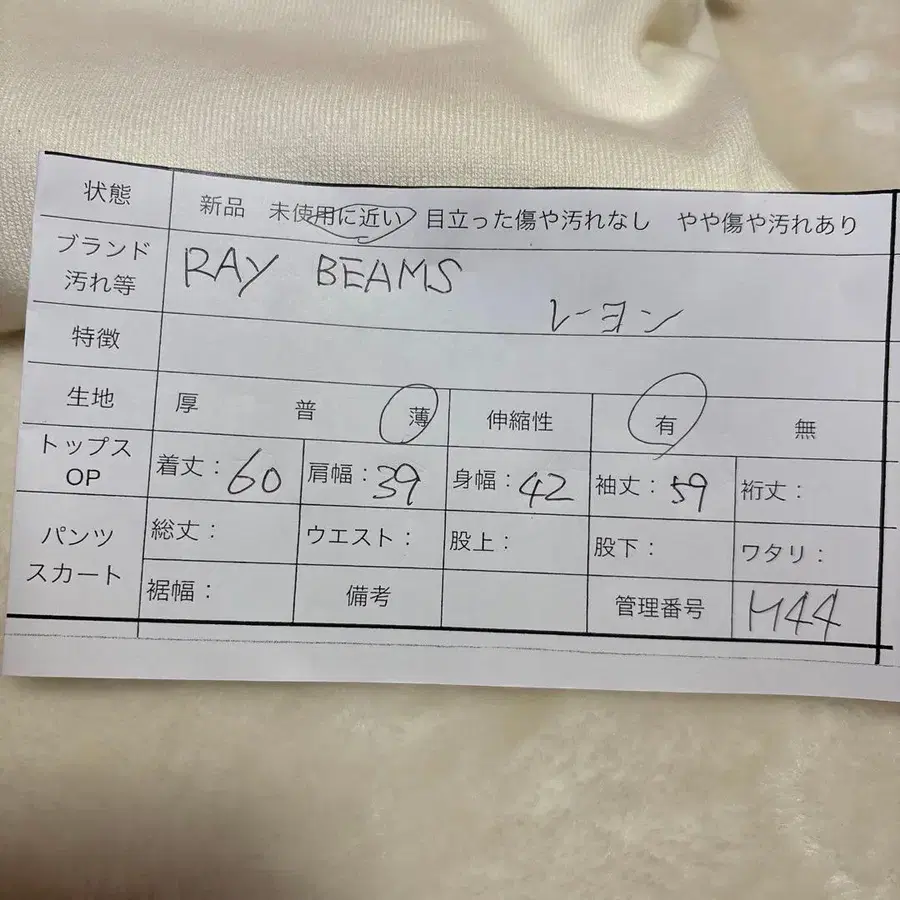 状態 新品 未使用に近い 目立った傷や汚れなし やや傷や汚れあり
ブランド 汚れ等 RAY BEAMS レーヨン
特徴
生地 厚 普 薄 伸縮性 有 無
トップス OP 着丈：60 肩幅：39 身幅：42 袖丈：59 裄丈：
パンツ スカート 総丈： ウエスト： 股上： 股下： ワタリ：
裾幅： 備考 管理番号 H44